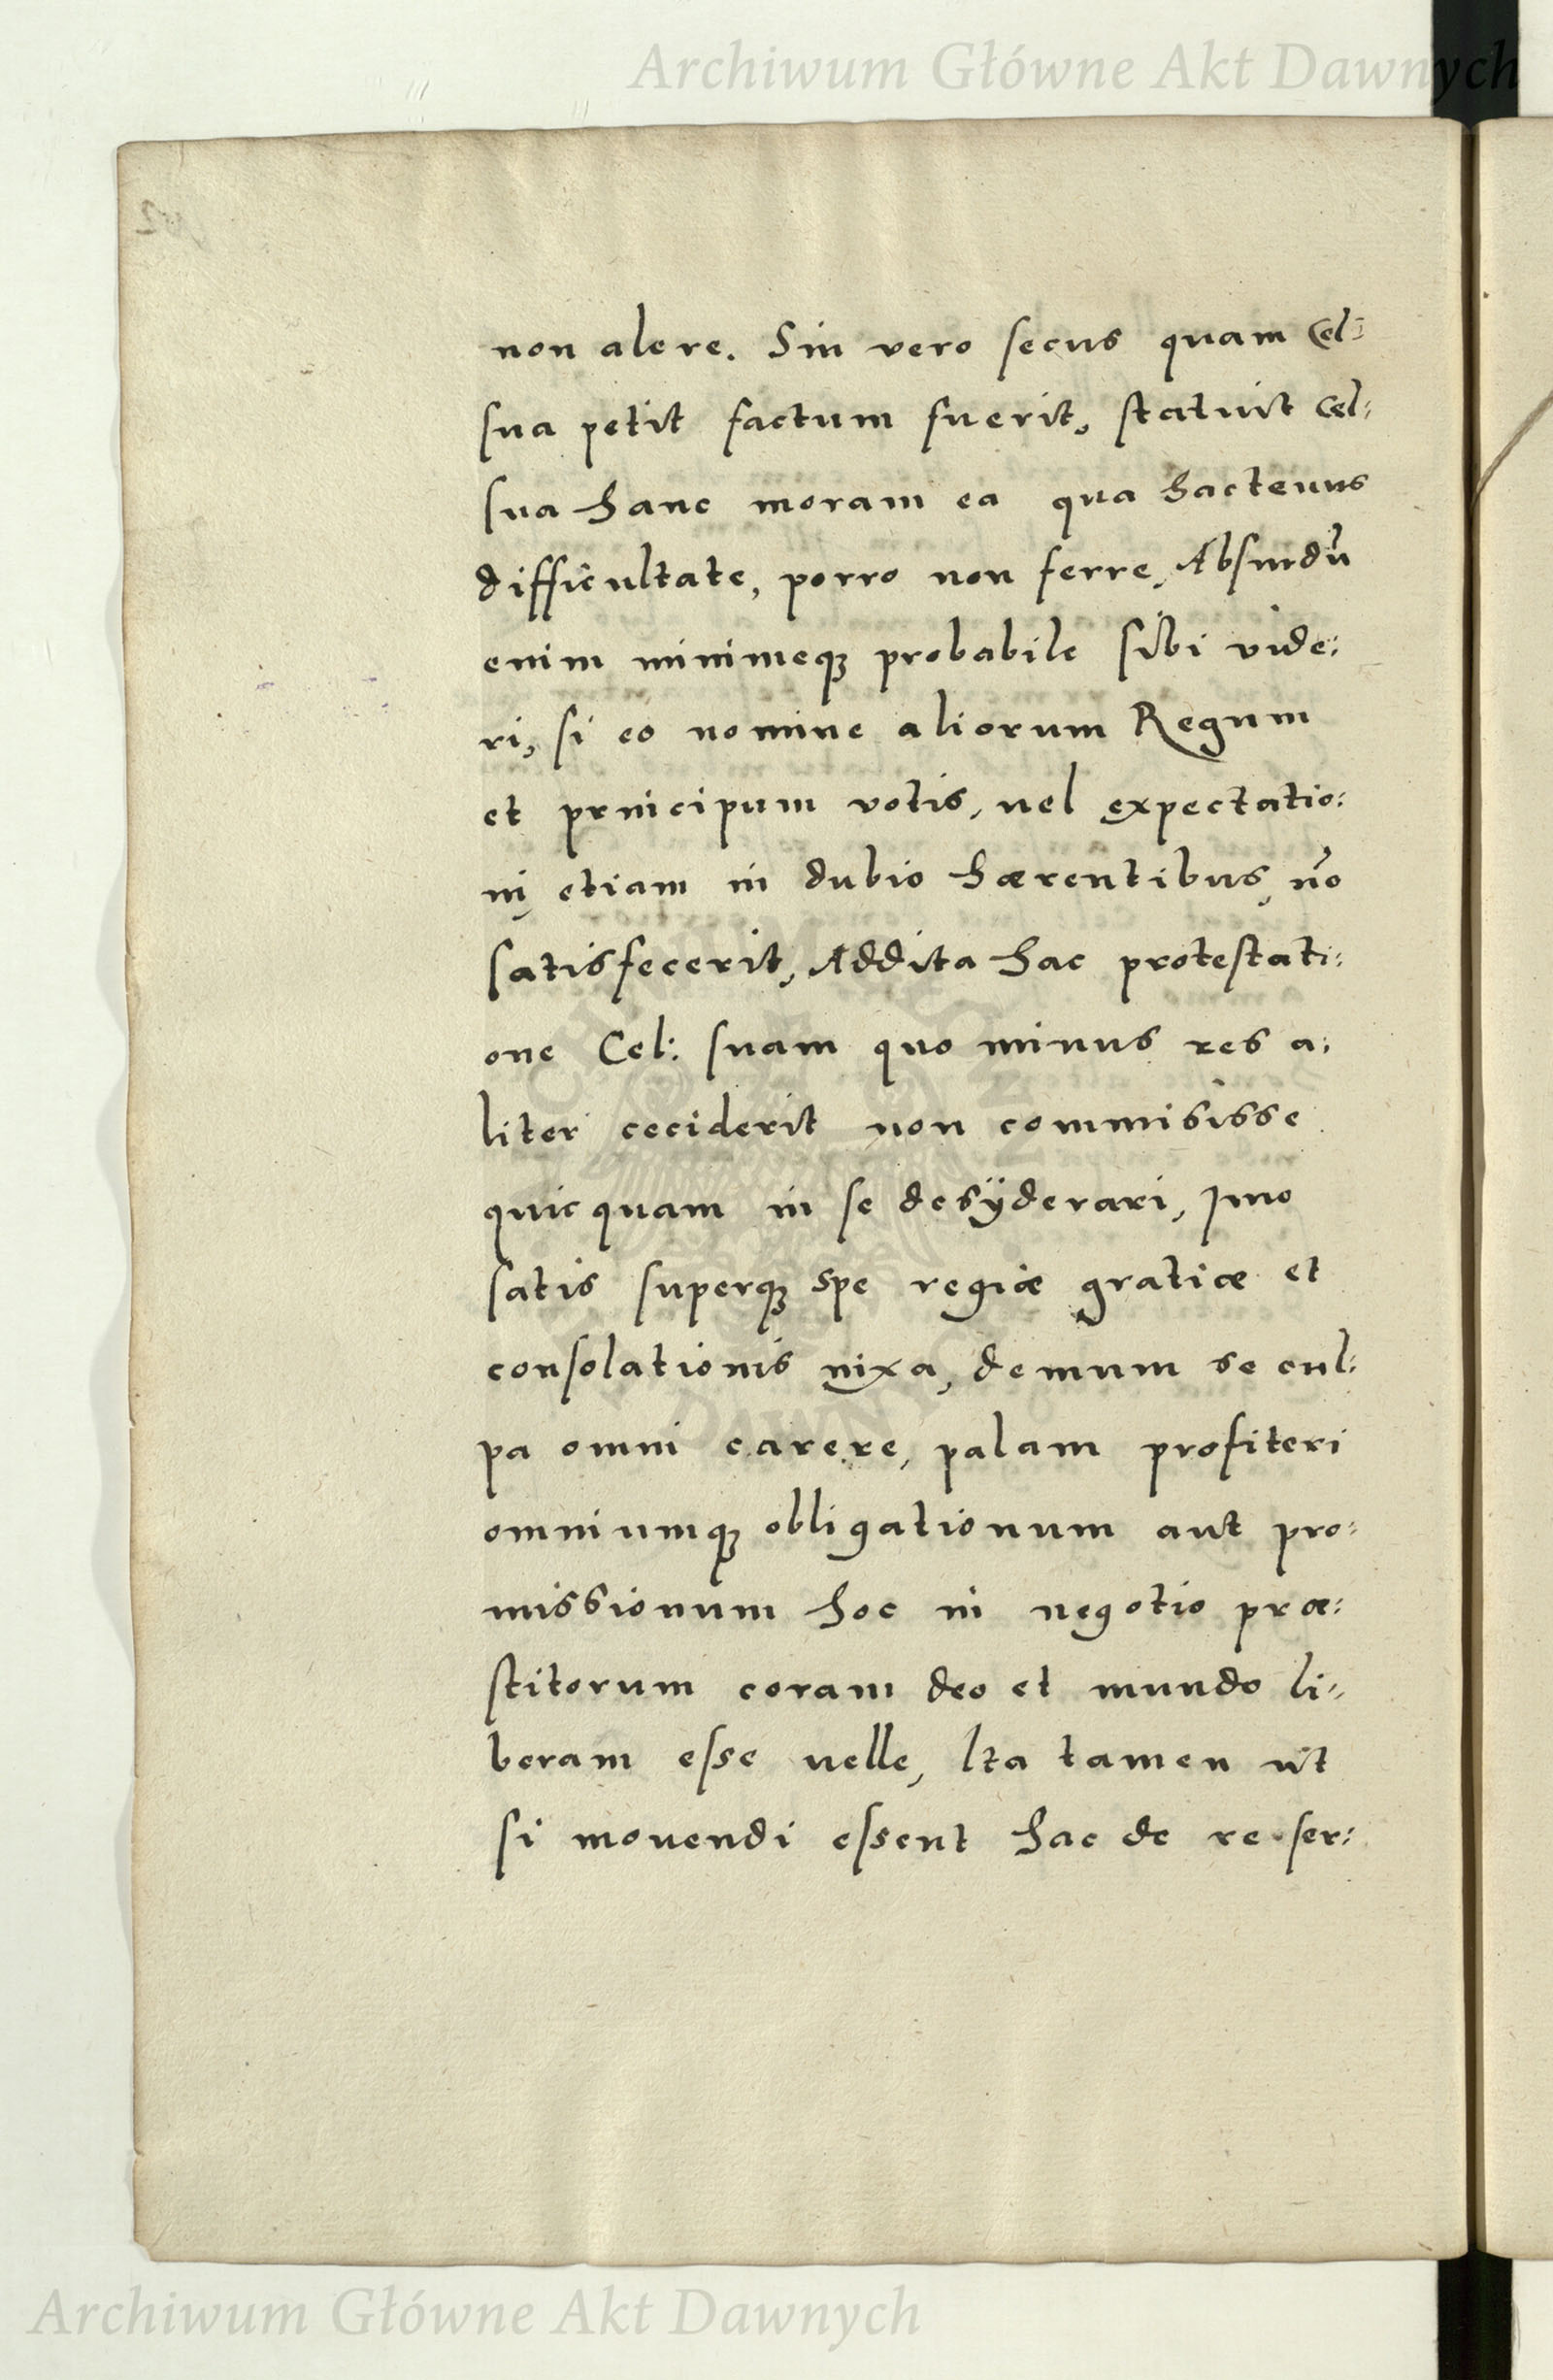 Archiwum Główne Akt Dawnych
non alere. Sin vero secus quam Cel:
sua petit factum fuerit, statuit Cel:
sua hanc moram ea qua hactenus
difficultate, porro non ferre, Absurdū
enim minimeqꝫ probabile sibi vide:
ri, si eo nomine aliorum Regum
et principum votis, uel expectatio:
ni etiam in dubio hærentibus, nō
satisfecerit, Addita hac protestati:
one Cel: suam quo minus res a:
liter ceciderit non commisisse
quicquam in se desÿderari, imo
satis superqꝫ spe regiæ gratiæ et
consolationis nixa, demum se cul:
pa omni carere, palam profiteri
omniumqꝫ obligationum aut pro:
missionum hoc in negotio præ:
stitorum coram deo et mundo li:
beram esse uelle, Ita tamen ut
si mouendi essent hac de re ser:
Archiwum Główne Akt Dawnych